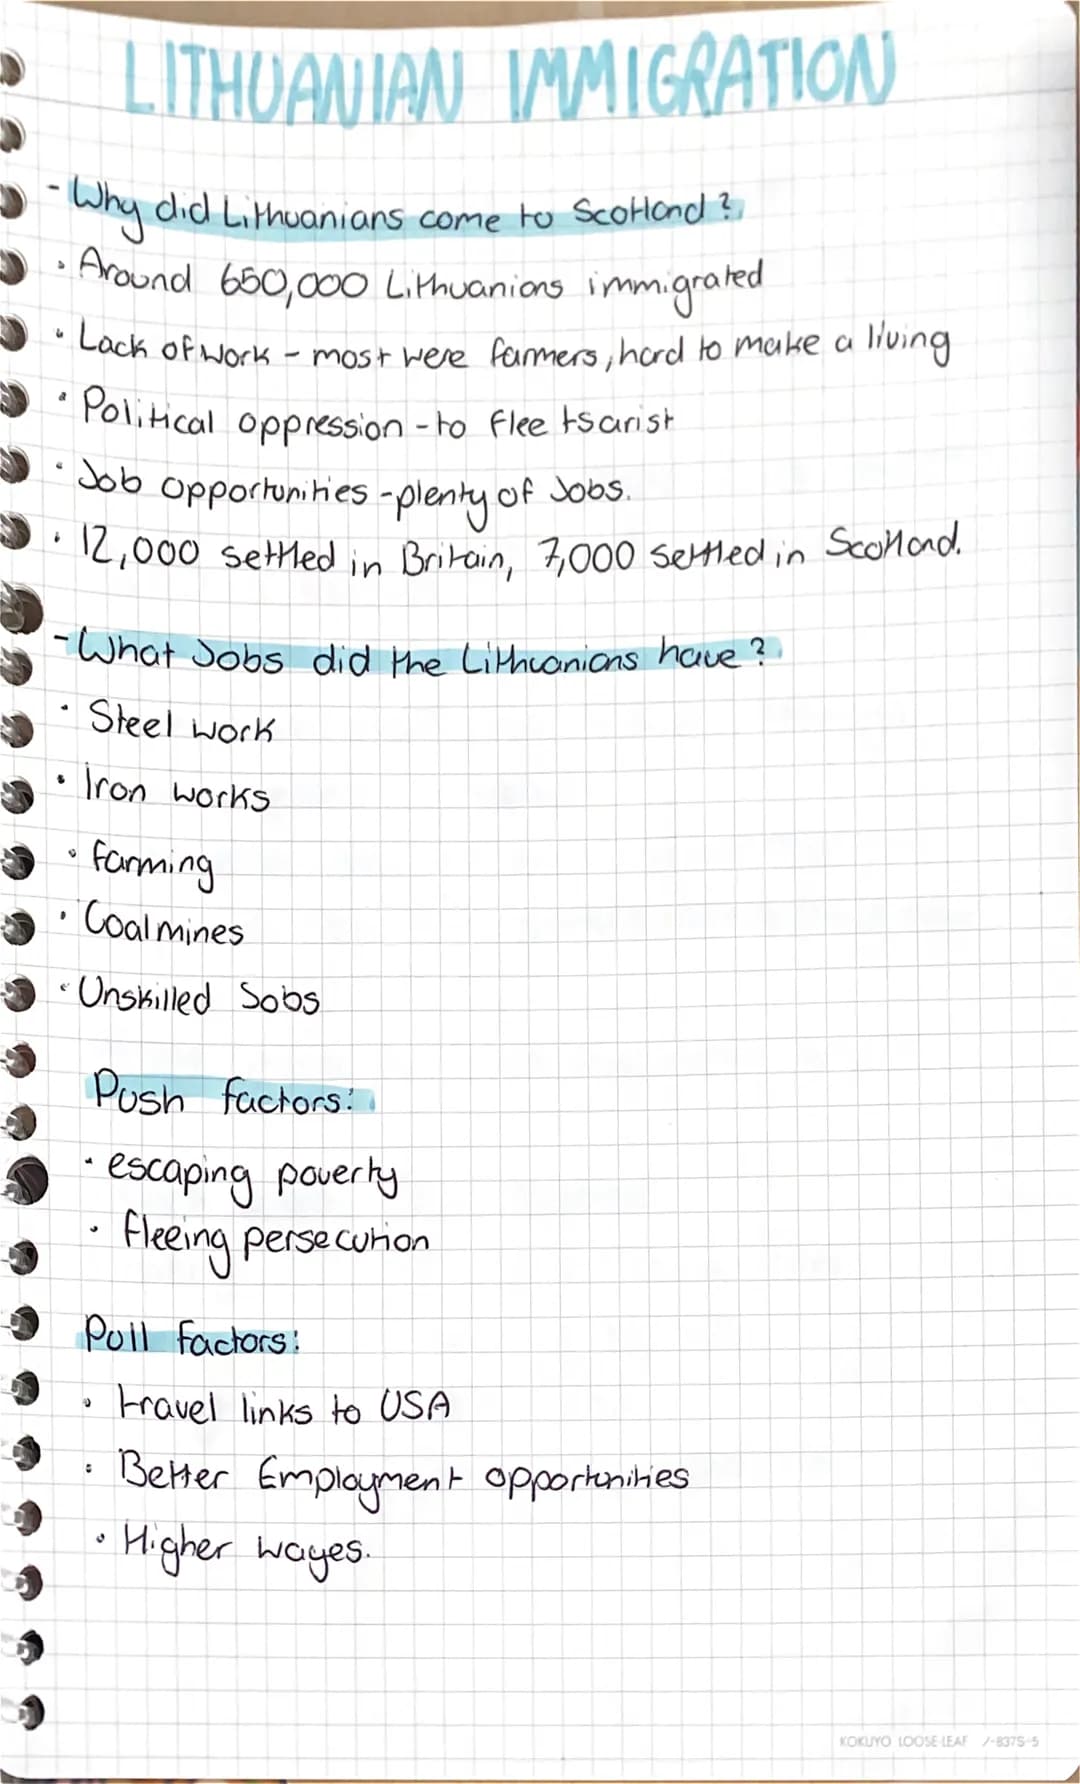 LITHUANIAN IMMIGRATION
- Why did Lithuanians come to Scotland?
· Around 650,000 Lithuanians immigrated
· Lack of work - most were farmers, hard to make a living
· Political oppression - to flee tsarist
· Job opportunities - plenty of Jobs.
· 12,000 settled in Britain, 7,000 settled in Scotland.
- What Jobs did the Lithuanians have?
· Steel work
· Iron works
· farming
· Coalmines
· Unskilled Jobs
Push factors:
· escaping poverty
· fleeing persecution
Pull factors:
· travel links to USA
· Better Employment opportunities
· Higher wages.
KOKUYO LOOSE-LEAF ノ-837S-5